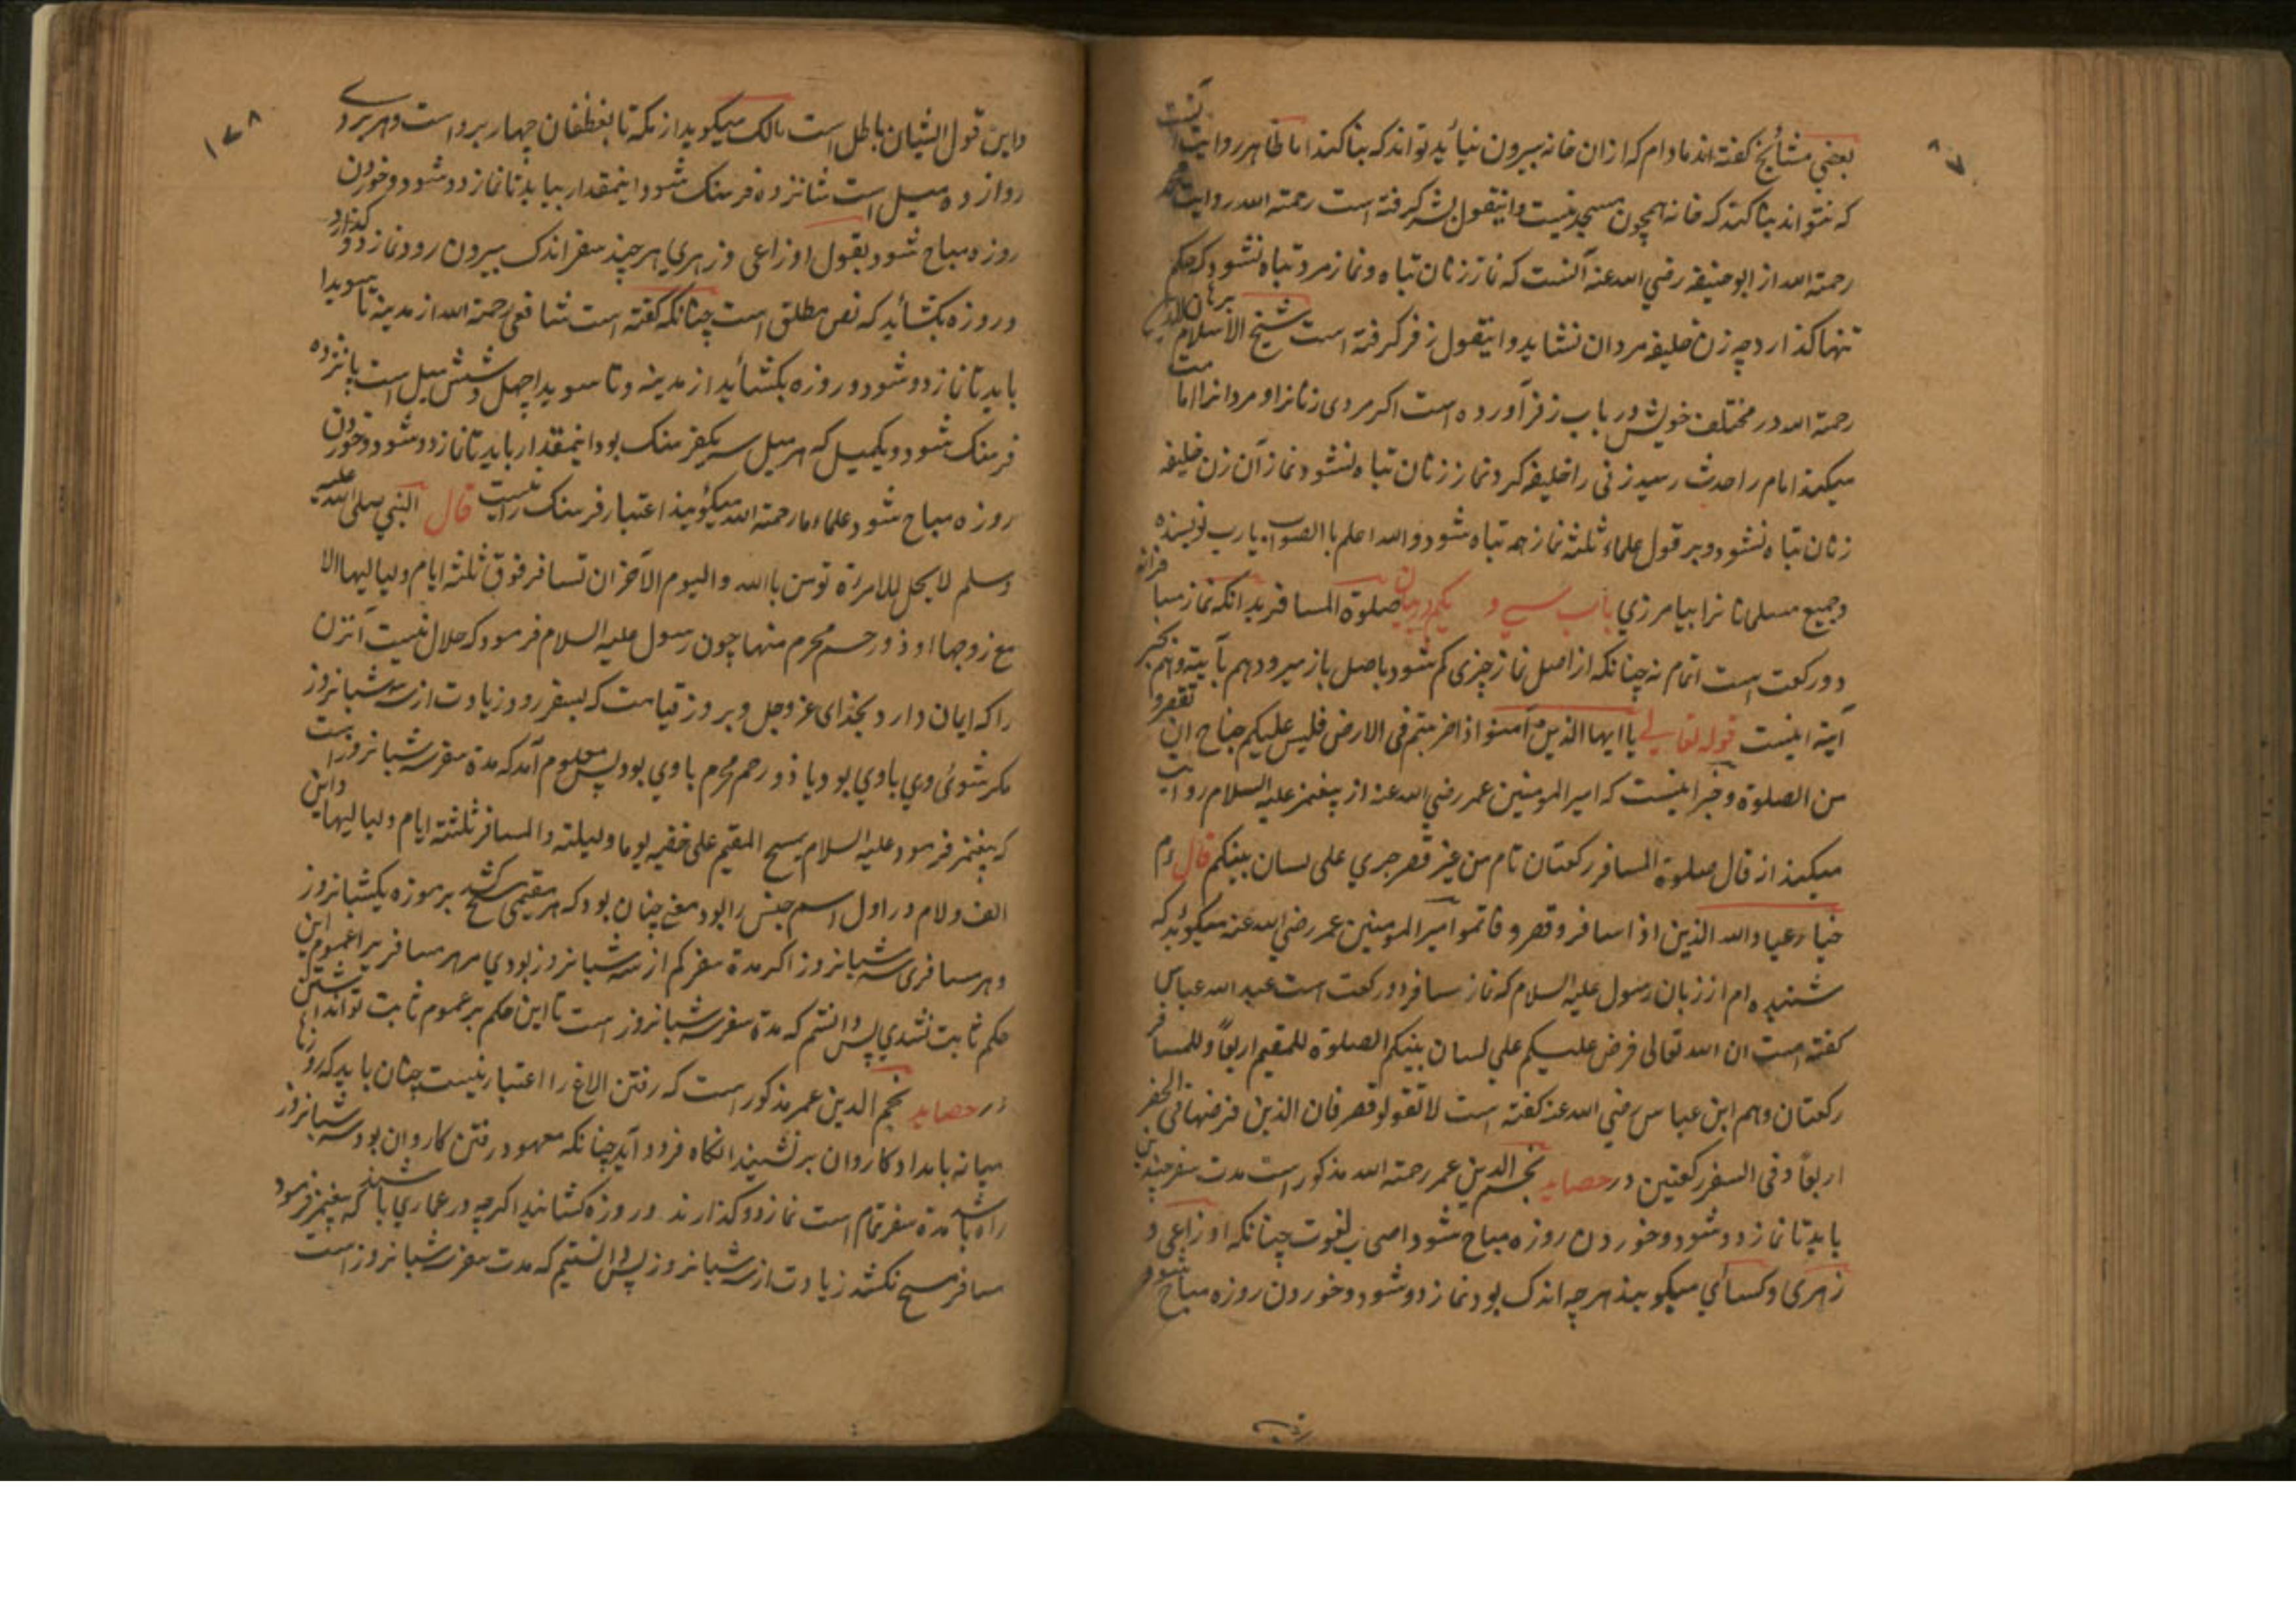 بعضي مشائخ كفته اند مادام كه ازان خانه بيرون نيايد تواند كه بنا كند اما ظاهر روايت آنست
كه نتواند بنا كند كه خانه همچون مسجد نيست واينقول بشر كرفته است رحمة الله روايت محمد
رحمة الله از ابو حنيفه رضي الله عنه آنست كه نماز زنان تباه ونماز مرد تباه نشود كه حكم
تنها كذارد چه زن خليفه مردان نشايد واينقول زفر كرفته است شيخ الاسلام برهان الدين
رحمة الله در مختلف خويش در باب زفر آورده است اكر مردى زنانرا و مردانرا امامت
ميكند امام را حدث رسيد زنى را خليفه كرد نماز زنان تباه نشود نماز آن زن خليفه
زنان تباه نشود وبر قول علماء ثلثه نماز همه تباه شود والله اعلم باالصواب يارب نويسنده
وجميع مسلمانانرا بيامرزي باب سي و يكم در بيان صلوة المسافر بدانكه نماز مسافرانه
دو ركعت است اتمام نه چنانكه از اصل نماز چيزى كم شود باصل باز ميرود هم بآيته وهم بخبر
آيته اينست قوله تعالى يا ايها الذين آمنوا اذا ضربتم فى الارض فليس عليكم جناح ان تقصروا
من الصلوة وخبر اينست كه امير المومنين عمر رضي الله عنه از پيغمبر عليه السلام روايت
ميكند از قال صلوة المسافر ركعتان تام من غير قصر جري على لسان نبيكم قال ءم
خيار عباد الله الذين اذا سافرو قصرو فاتموا امير المومنين عمر رضي الله عنه ميكويد كه
شنيده ام از زبان رسول عليه السلام كه نماز مسافر دو ركعت است عبد الله عباس
كفته است ان الله تعالى فرض عليكم علي لسان نبيكم الصلوة للمقيم اربعاً وللمسافر
ركعتان وهم ابن عباس رضي الله عنه كفته است لا تقولو قصر فان الذين فرضها فى الحضر
اربعاً وفى السفر ركعتين در حصايد نجم الدين عمر رحمة الله مذكور است مدت سفر چندين
بايد تا نماز دو شود وخوردن روزه مباح شود اصحاب لغوت چنانكه اوزاعى و
زهرى وكسائي ميكويند هر چه اندك بود نماز دو شود وخوردن روزه مباح شود
واين قول ايشان باطل است مالك ميكويد از مكه تا بغطفان چهار برد است وهر بردے
دوازده ميل است شانزده فرسنك شود اينمقدار بيايد تا نماز دو شود وخوردن
روزه مباح شود بقول اوزاعى وزهري هر چند سفر اندك بيرون رود نماز دو كذارد
وروزه بكشايد كه نص مطلق است چنانكه كفته است شافعى رحمة الله از مدينه تا سويدا
بايد تا نماز دو شود وروزه بكشايد از مدينه وتا سويدا چهل وشش ميل است پانزده
فرسنك شود ويكميل كه هر ميل سريكفرسنك بود اينمقدار بايد تا نماز دو شود وخوردن
روزه مباح شود علماء ما رحمة الله ميكويند اعتبار فرسنك را نيست قال النبي صلى الله عليه
وسلم لا يحل للامراة تومن باالله واليوم الآخر ان تسافر فوق ثلثه ايام ولياليها الا
مع زوجها او ذو رحم محرم منها چون رسول عليه السلام فرمود كه حلال نيست آنزن
را كه ايمان دارد بخداى عز وجل وبروز قيامت كه بسفر رود زيادت از سه شبانروز
مكر شوئ وي باوي بود ويا ذو رحم محرم باوي بود پس معلوم آمد كه مدة سفر سه شبانروز است
كه پيغمبر فرمود عليه السلام يمسح المقيم على خفيه يوما وليلته والمسافر ثلثته ايام ولياليها واين
الف ولام در اول اسم جنس را بود معنے چنان بود كه هر مقيمى مسح كشد بر موزه يكشبانروز
وهر مسافرى سه شبانروز اكر مدة سفر كم از سه شبانروز بودي مر هر مسافر را عموم اين
حكم ثابت نشدي پس دانستم كه مدة سفر سه شبانروز است تا اين حكم بر عموم ثابت تواند داشتن
در حصايد نجم الدين عمر مذكور است كه رفتن الاغ را اعتبار نيست چنان بايد كه روزها
ميانه بامداد كاروان برنشيند انكاه فرود آيد چنانكه معهود رفتن كاروان بود سه شبانروز
راه باشد مدة سفر تمام است نماز دو كذارند وروزه كشايند اكرچه در عماري باشند كه پيغمبر فرمود
مسافر مسح نكشد زيادت از سه شبانروز پس دانستيم كه مدت سفر سه شبانروز است